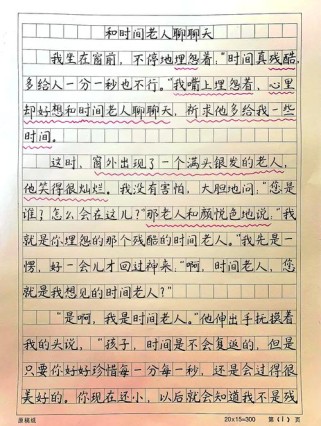 和时间老人聊聊天
我坐在窗前，不停地埋怨着："时间真残酷，
多给人一分一秒也不行。"我嘴上埋怨着，心里
却好想和时间老人聊聊天，祈求他多给我一些
时间。
这时，窗外出现了一个满头银发的老人，
他笑得很灿烂。我没有害怕，大胆地问："您是
谁？怎么会在这儿？"那老人和颜悦色地说："我
就是你埋怨的那个残酷的时间老人。"我先是一
愣，好一会儿才回过神来："啊，时间老人，您
就是我想见的时间老人？"
"是啊，我是时间老人。"他伸出手抚摸着
我的头说，"孩子，时间是不会复返的，但是
只要你好好珍惜每一分每一秒，还是会过得很
美好的。你现在还小，以后就会知道我不是残
20×15=300 第（1）页